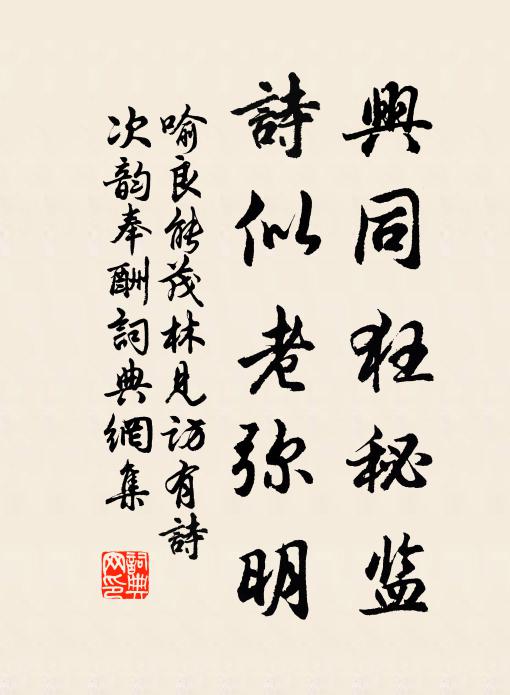 興同狂秘监
詩似老弥明
喻良能茂林見访有詩
次韵奉酬詞典網集
詞典
网印